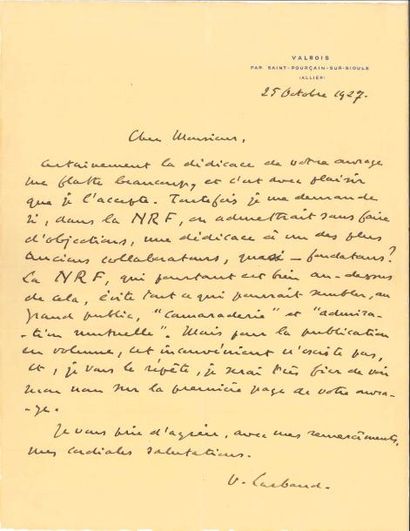 VALBOIS
PAR SAINT-POURÇAIN-SUR-SIOULE
(ALLIER)
25 Octobre 1927.
Cher Monsieur,
certainement la dédicace de votre ouvrage
me flatte beaucoup, et c'est avec plaisir
que je l'accepte. Toutefois je me demande
si, dans la NRF, on admettrait sans faire
d'objections, une dédicace à un des plus
anciens collaborateurs, quasi-fondateurs?
La NRF, qui pourtant est bien au-dessus
de cela, évite tout ce qui pourrait sembler, au
grand public, "camaraderie" et "admira-
tion mutuelle". Mais pour la publication
en volume, cet inconvénient n'existe pas,
et, je vous le répète, je serai très fier de voir
mon nom sur la première page de votre ouvra-
ge.
Je vous prie d'agréer, avec mes remerciements,
mes cordiales salutations.
V. Larbaud.